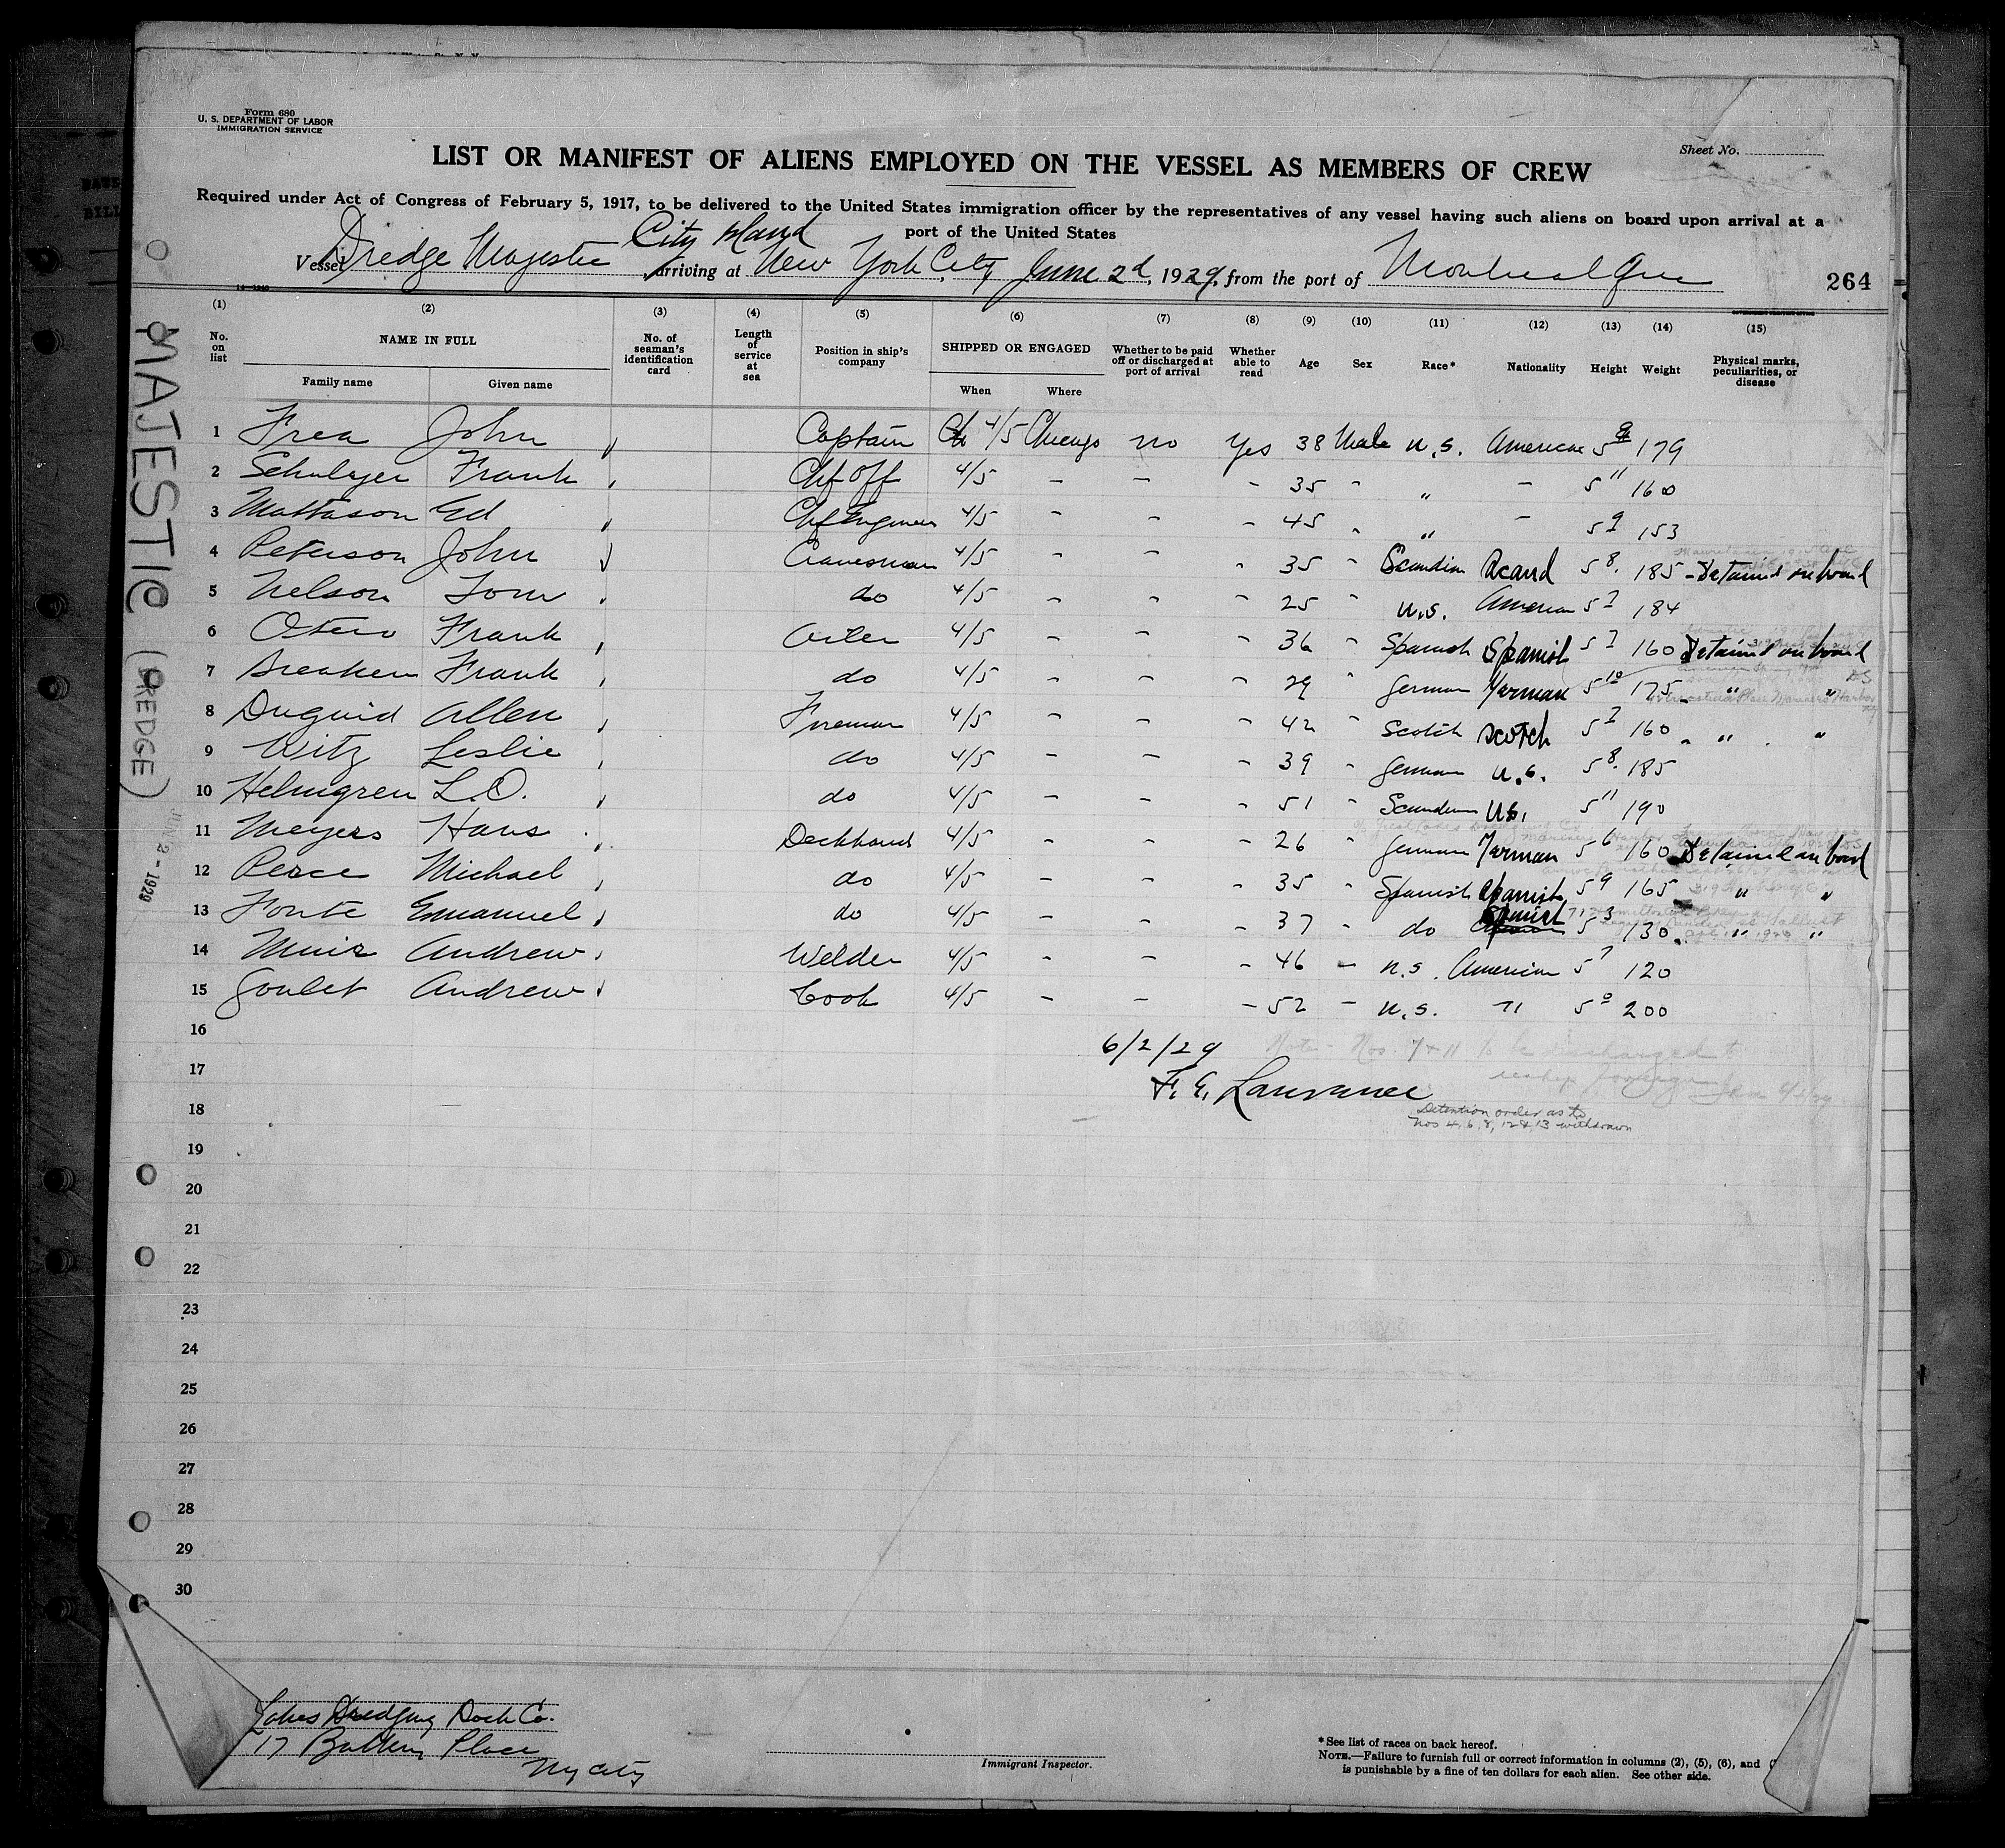 Form 680
U. S. DEPARTMENT OF LABOR
IMMIGRATION SERVICE
Sheet No.
LIST OR MANIFEST OF ALIENS EMPLOYED ON THE VESSEL AS MEMBERS OF CREW
Required under Act of Congress of February 5, 1917, to be delivered to the United States immigration officer by the representatives of any vessel having such aliens on board upon arrival at a
port of the United States
City Island
Vessel Dredge Majestic, arriving at New York City June 2d, 1929, from the port of Montreal Que
264
(1) (2) (3) (4) (5) (6) (7) (8) (9) (10) (11) (12) (13) (14) (15)
No. on list NAME IN FULL No. of seaman's identification card Length of service at sea Position in ship's company SHIPPED OR ENGAGED Whether to be paid off or discharged at port of arrival Whether able to read Age Sex Race* Nationality Height Weight Physical marks, peculiarities, or disease
Family name Given name When Where
1 Frea John Captain 4/5 Chicago no Yes 38 Male U.S. American 5 9 179
2 Schulyer Frank Chf Off 4/5 - - - 35 " " - 5 11 160
3 Mattason Ed Chf Engineer 4/5 - - - 45 " " - 5 9 153
4 Peterson John Cranesman 4/5 - - " 35 " Scandin Scand 5 8 185 - Detained on board
5 Nelson Tom do 4/5 - - - 25 " U.S. American 5 7 184
6 Otero Frank Oiler 4/5 - - - 36 " Spanish Spanish 5 7 160 Detained on board
7 Frank do 4/5 - - - 29 " German German 5 10 175 - " "
8 Duguid Allen Fireman 4/5 - - - 42 " Scotch Scotch 5 7 160 - " "
9 Witz Leslie do 4/5 - - - 39 " German U.S. 5 8 185
10 Helmgren L.O. do 4/5 - - - 51 " Scandin U.S. 5 11 190
11 Meyers Hans Deckhand 4/5 - - - 26 " German German 5 6 160 Detained on board
12 Perce Michael do 4/5 - - - 35 " Spanish Spanish 5 9 165 " "
13 Fonte Emanuel do 4/5 - - - 37 " do Spanish 5 3 130 " "
14 Muir Andrew Welder 4/5 - - - 46 - U.S. American 5 7 120
15 Goulet Andrew Cook 4/5 - - - 52 - U.S. " 5 0 200
16
17
18
19
20
21
22
23
24
25
26
27
28
29
30
6/2/29
Note - Nos. 7 & 11 to be discharged to
reship foreign
F. E. Lawrance
Detention order as to
Nos 4, 6, 8, 12 & 13 withdrawn
MAJESTIC (DREDGE)
JUN 2 - 1929
Lakes Dredging Dock Co.
17 Battery Place
Ny City
Immigrant Inspector.
*See list of races on back hereof.
NOTE.—Failure to furnish full or correct information in columns (2), (5), (6), and (
is punishable by a fine of ten dollars for each alien. See other side.